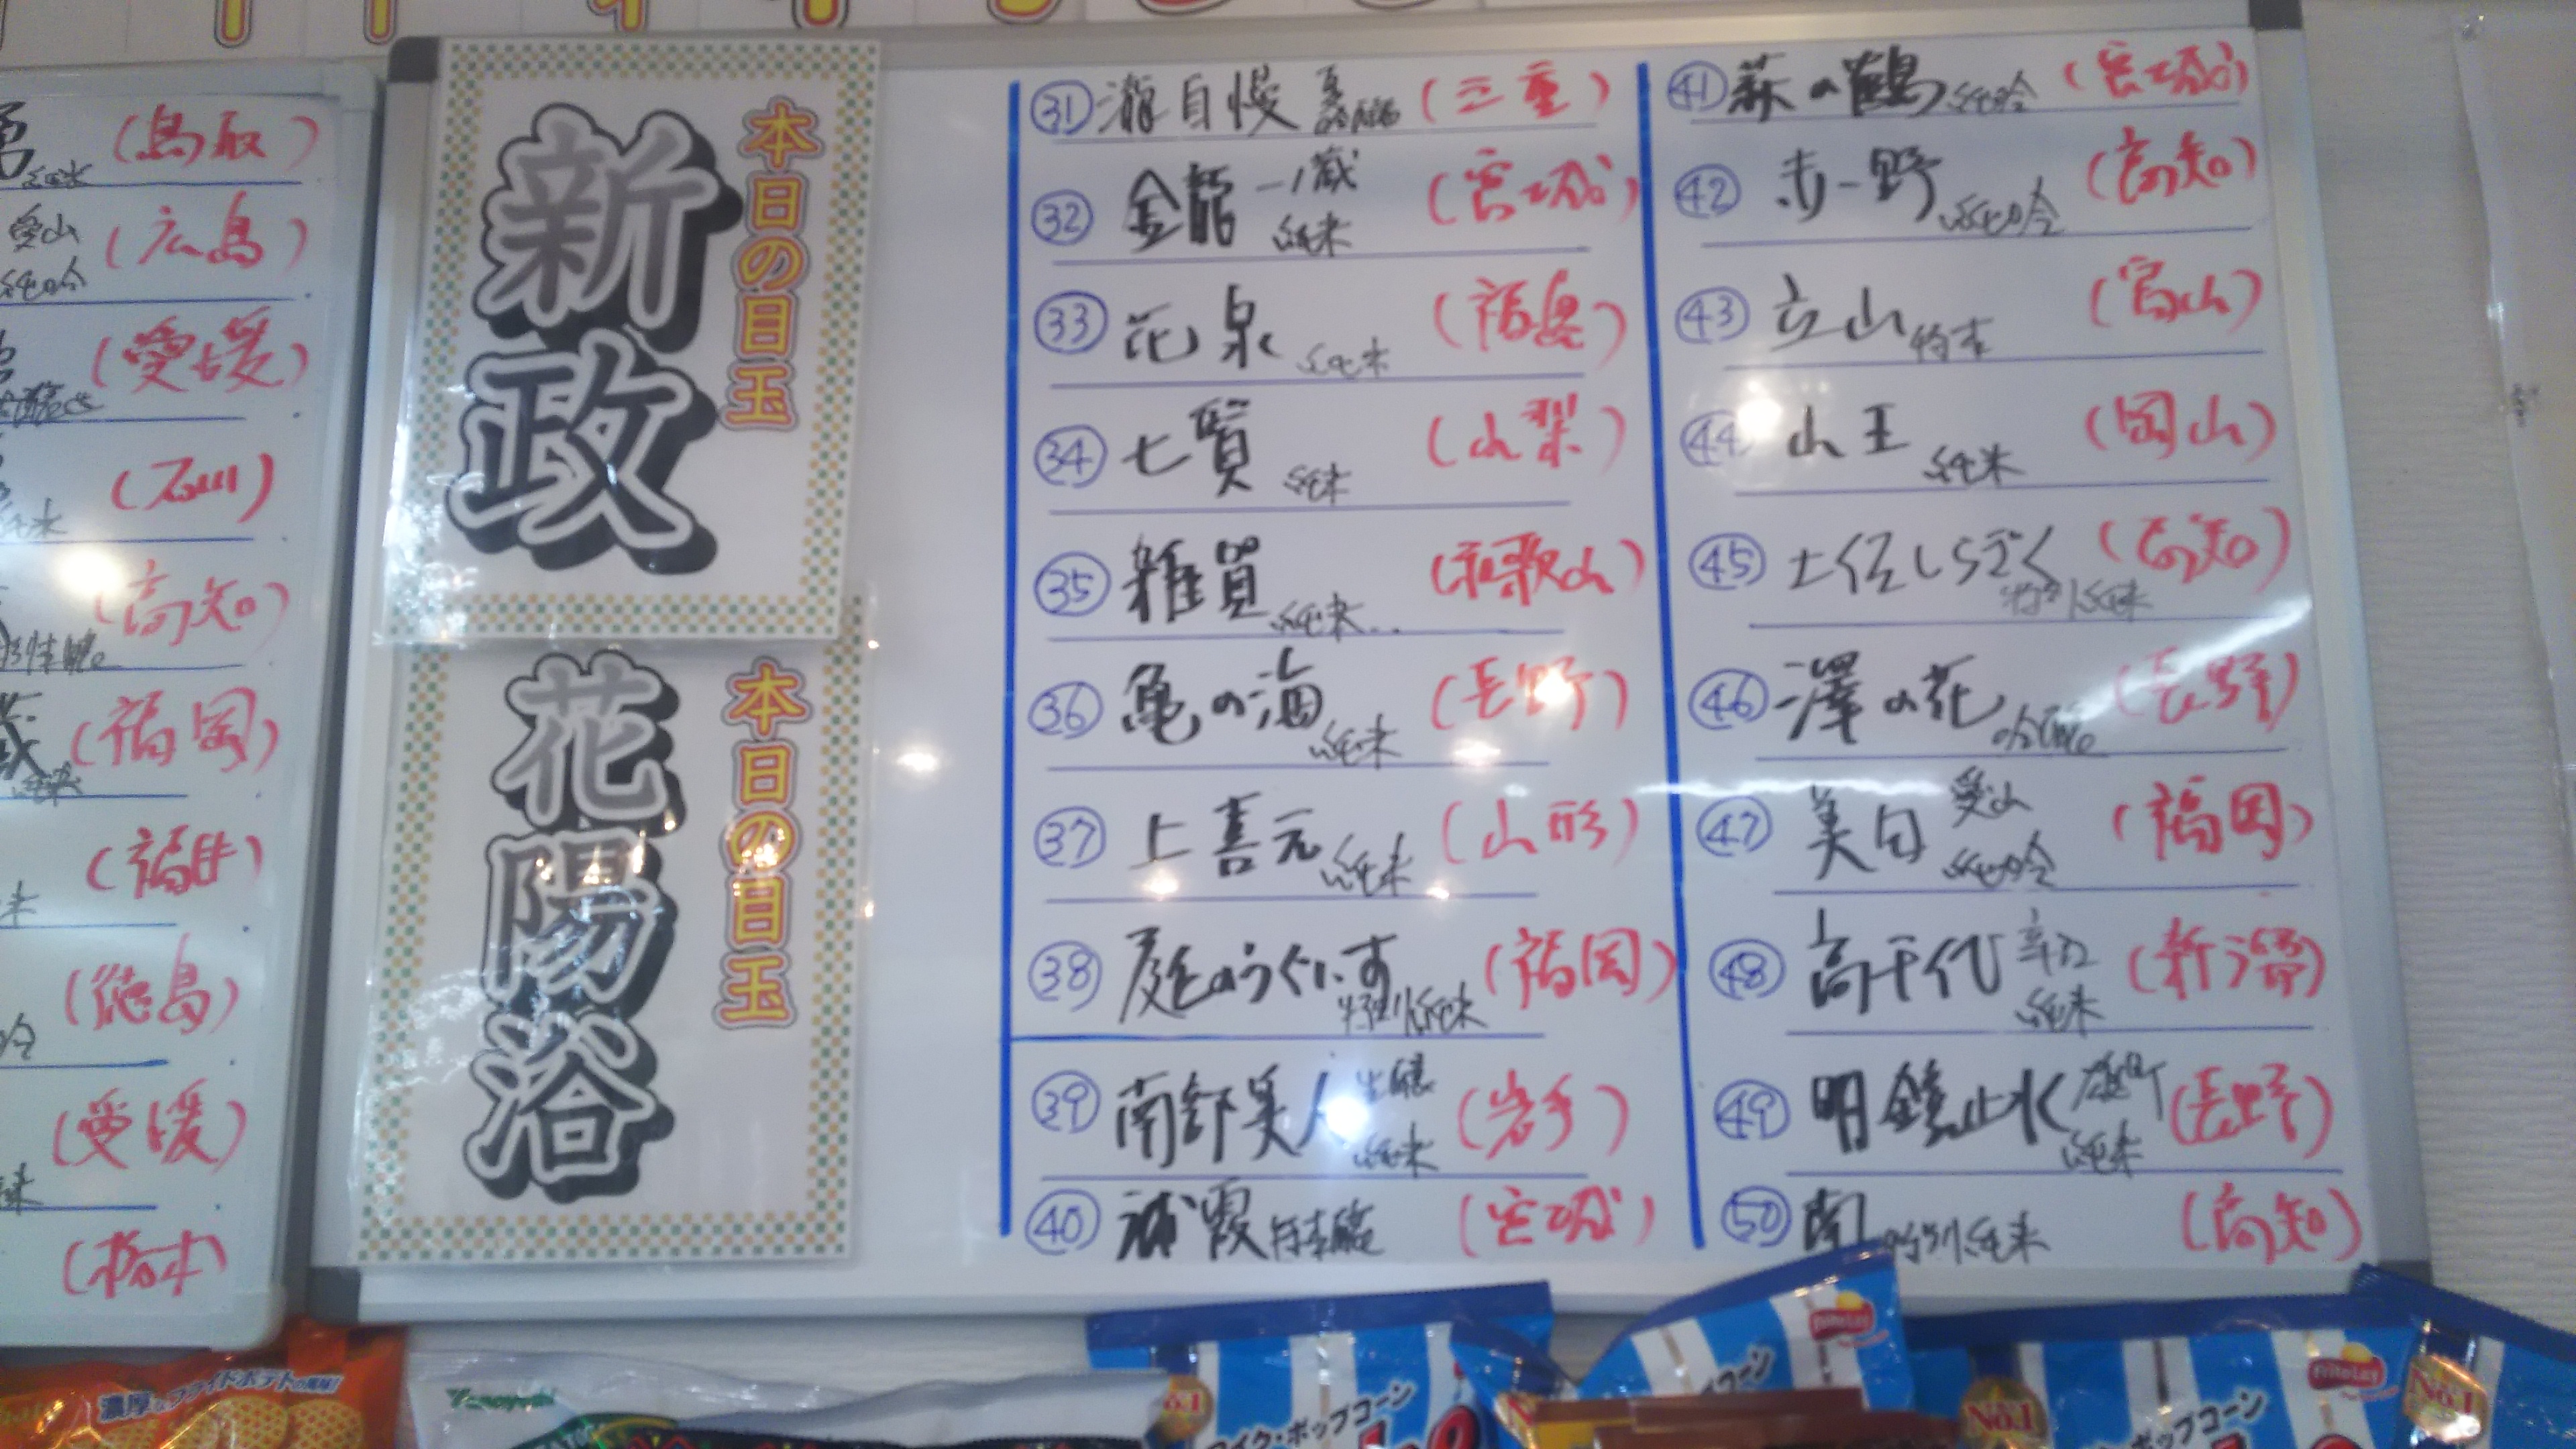 (鳥取)
純米
(広島)
愛山
純吟
(愛媛)
(石川)
(高知)
(福岡)
純米
(福井)
(徳島)
(愛媛)
(栃木)
本日の目玉
新政
本日の目玉
花陽浴
㉛ 瀧自慢 (三重)
㉜ 金龍 一ノ蔵 純米 (宮城)
㉝ 花泉 純米 (福島)
㉞ 七賢 純米 (山梨)
㉟ 雑賀 純米 (和歌山)
㊱ 亀の海 純米 (長野)
㊲ 上喜元 純米 (山形)
㊳ 庭のうぐいす 特別純米 (福岡)
㊴ 南部美人 純米 (岩手)
㊵ 浦霞 (宮城)
㊶ 萩の鶴 純吟 (宮城)
㊷ 赤野 純吟 (高知)
㊸ 立山 特本 (富山)
㊹ 山王 純米 (岡山)
㊺ 土佐しらぎく 特別純米 (高知)
㊻ 澤の花 吟醸 (長野)
㊼ 美田 愛山 純吟 (福岡)
㊽ 高千代 辛口 純米 (新潟)
㊾ 明鏡止水 雄町 純米 (長野)
㊿ 南 特別純米 (高知)
濃厚なフライドポテトの風味!
Frito Lay
Frito Lay
No.1
No.1
マイク・ポップコーン
ポップコーン